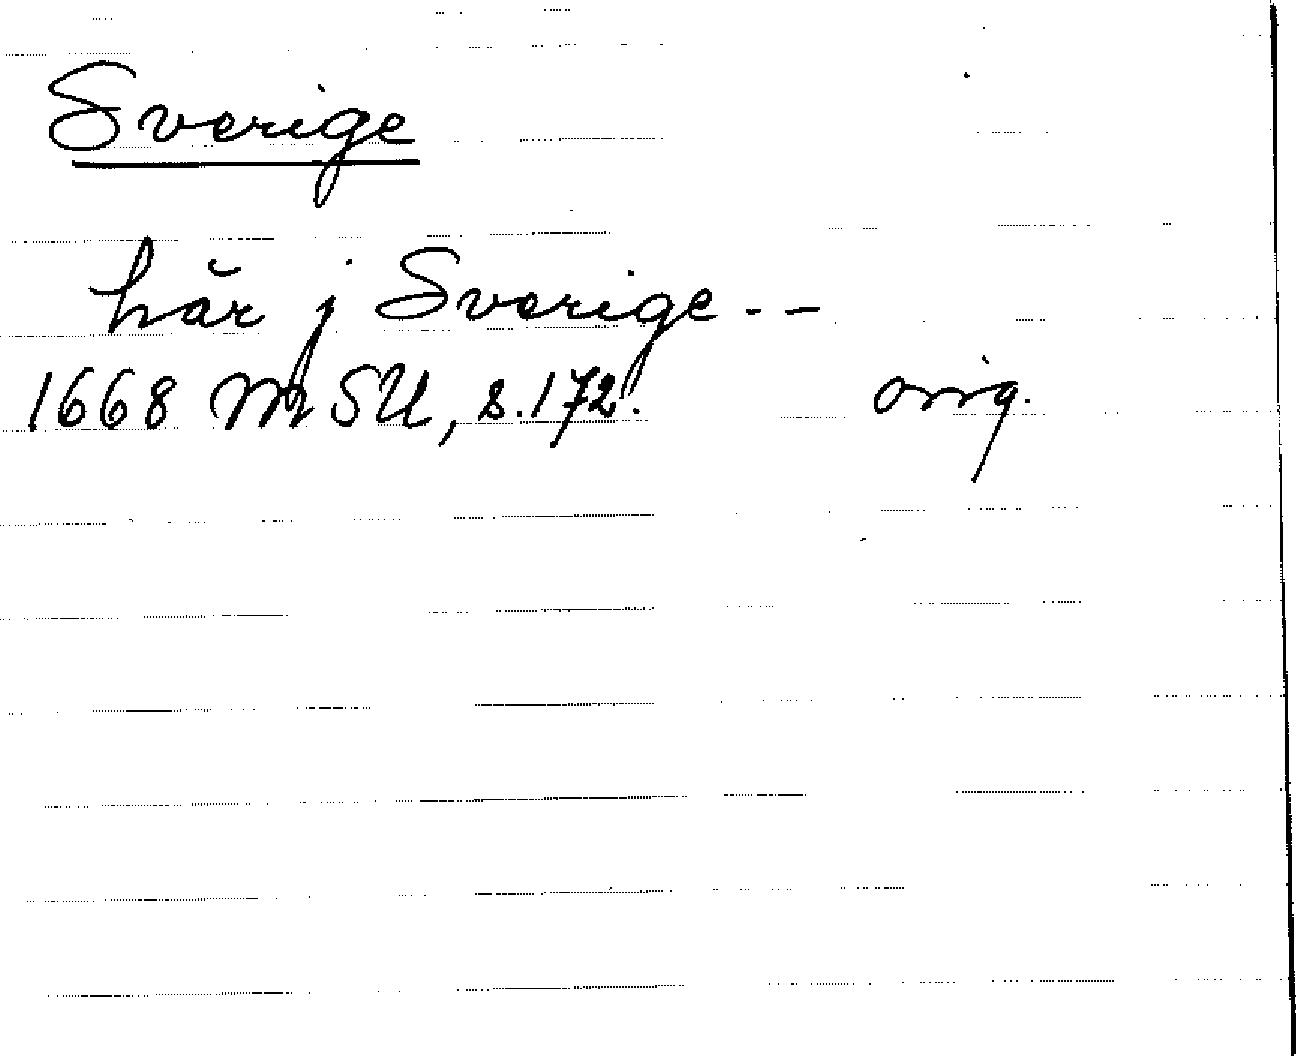 Sverige
här j Sverige --
1668 MSU, s. 172. orig.